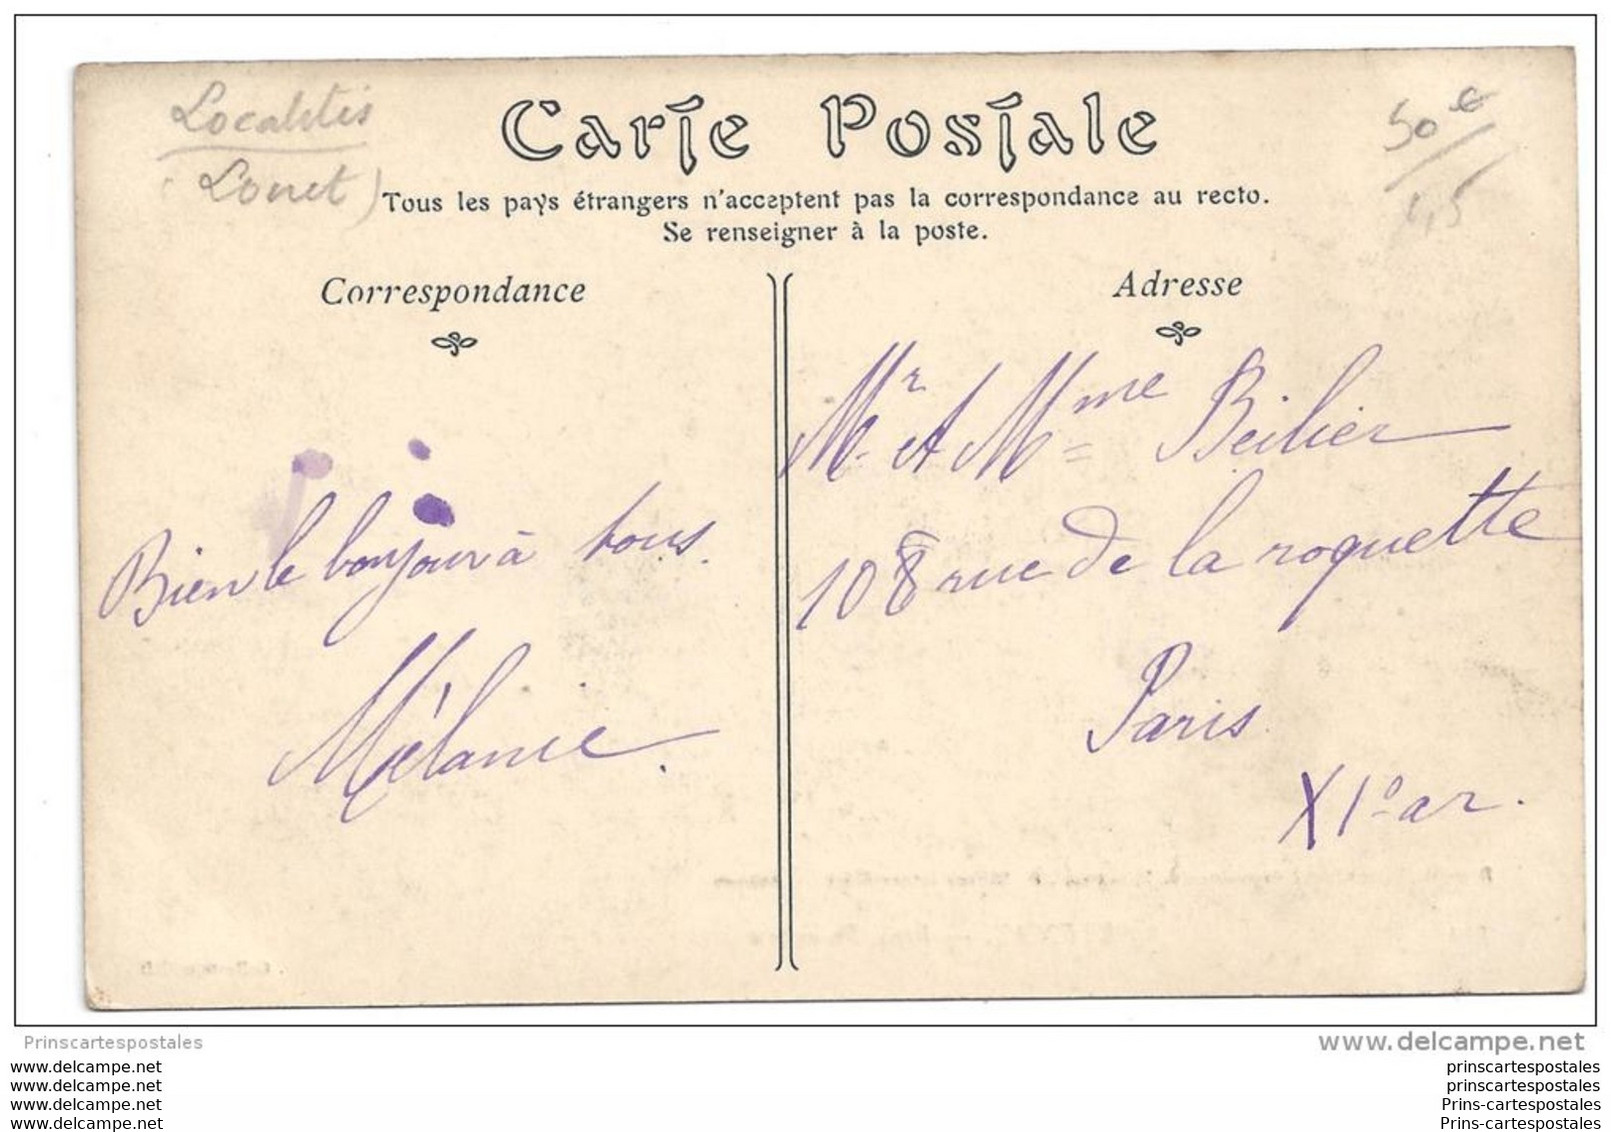 Localités
Loiret)
50 €
1,5
Carte Postale
Tous les pays étrangers n'acceptent pas la correspondance au recto.
Se renseigner à la poste.
Correspondance
Bien le bonjour à tous.
Mélanie.
Adresse
Mr et Mme Beilier
108 rue de la roquette
Paris
XIº ar.
Prinscartespostales
www.delcampe.net
www.delcampe.net
www.delcampe.net
www.delcampe.net
www.delcampe.net
prinscartespostales
prinscartespostales
Prins-cartespostales
Prins-cartespostales